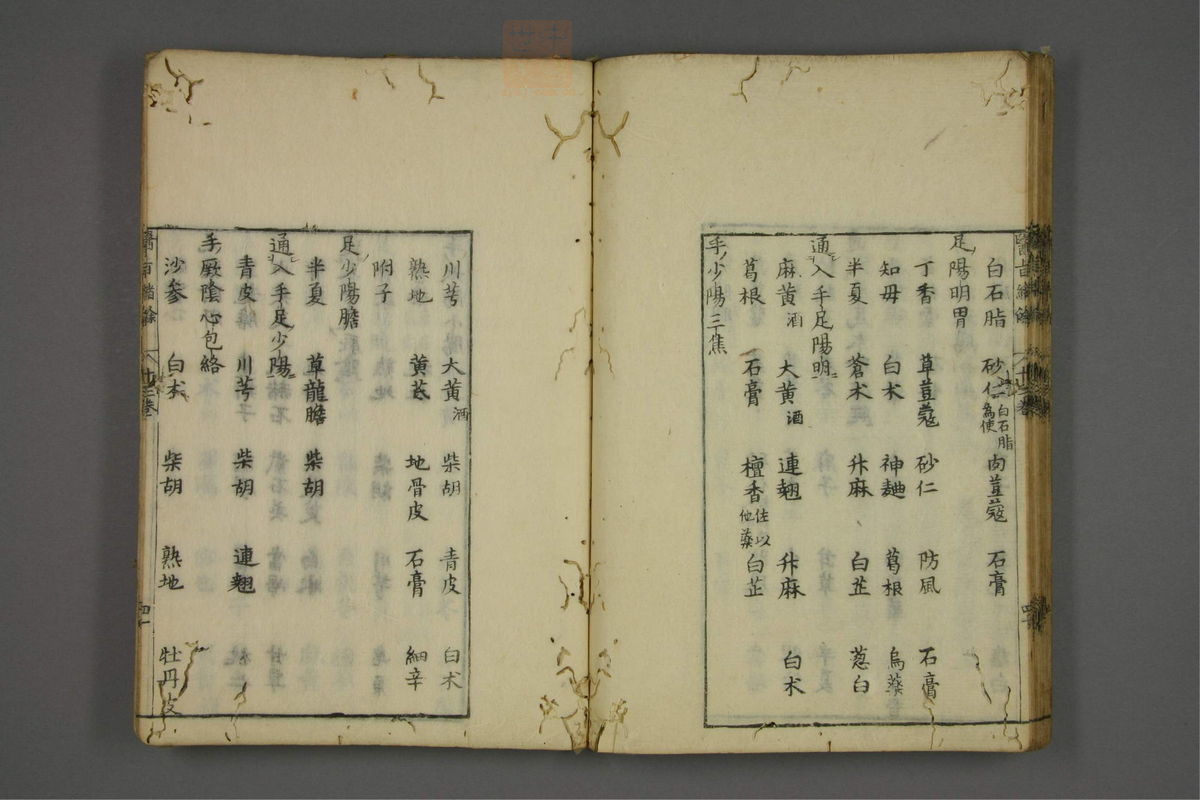 白石脂 砂仁 白石脂為使 肉荳蔻 石膏
足陽明胃
丁香 草荳蔻 砂仁 防風 石膏
知毋 白朮 神麯 葛根 烏藥
半夏 蒼朮 升麻 白芷 蔥白
通入手足陽明
麻黃酒 大黃酒 連翹 升麻 白朮
葛根 石膏 檀香佐以他藥 白芷
手少陽三焦
川芎 大黃酒 柴胡 青皮 白朮
熟地 黃芪 地骨皮 石膏 細辛
附子
足少陽膽
半夏 草龍膽 柴胡
通入手足少陽
青皮 川芎 柴胡 連翹
手厥陰心包絡
沙參 白朮 柴胡 熟地 牡丹皮